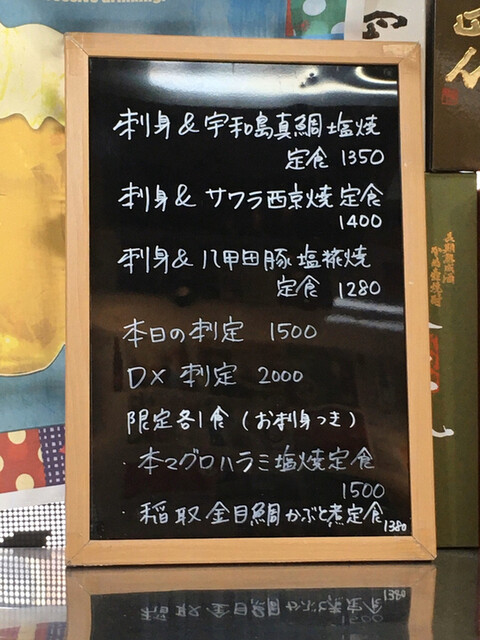 刺身&宇和島真鯛塩焼
定食 1350
刺身& サワラ西京焼定食
1400
刺身& 八甲田豚塩糀焼
定食 1280
本日の刺定 1500
DX 刺定 2000
限定各1食(お刺身つき)
・本マグロハラミ塩焼定食
1500
・稲取金目鯛かぶと煮定食 1380
長期熟成酒